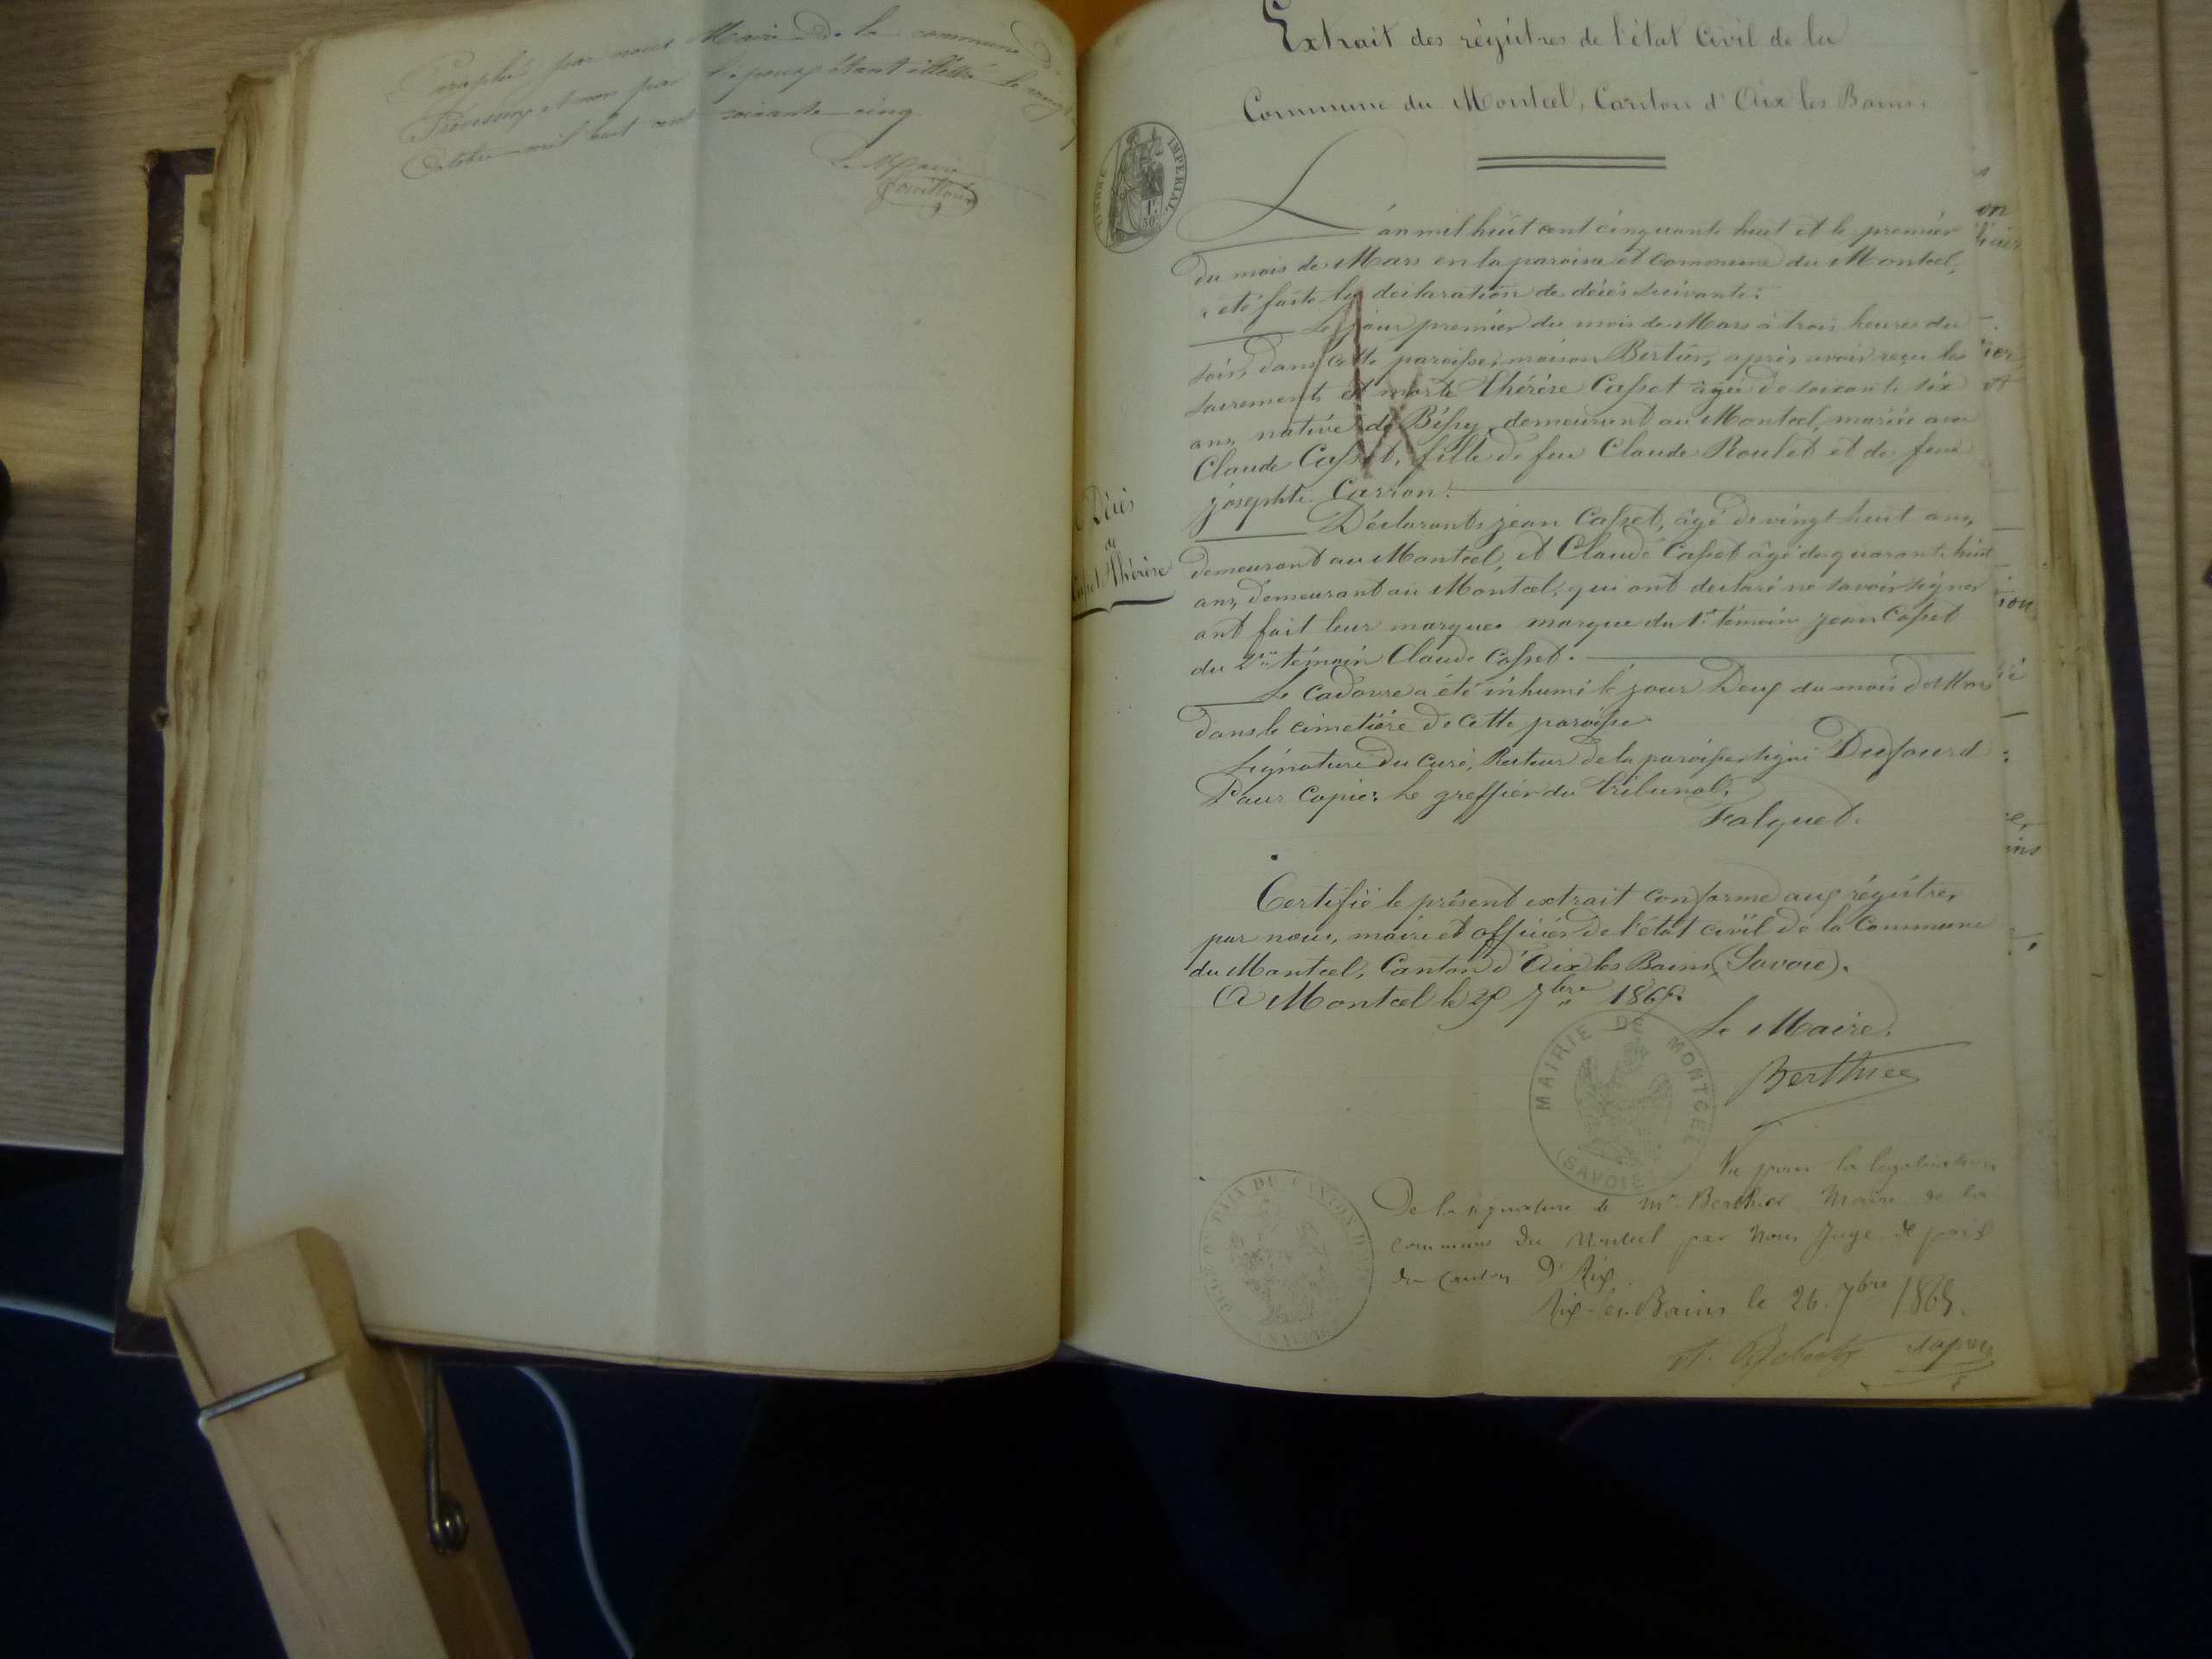 Paraphé par nous Maire de la commune de
Prévessin et non par l'époux étant illétré le vingt
Octobre mil huit cent soixante cinq
Le Maire
Extrait des régistres de l'état Civil de la
Commune du Montcel, Canton d'Aix les Bains.
TIMBRE IMPERIAL
1F 50c
L'an mil huit cent cinquante huit et le premier
du mois de Mars en la paroisse et Commune du Montcel,
a été faite la déclaration de décès suivante:
Le jour premier du mois de Mars à trois heures du
soir, dans cette paroisse, maison Bertier, après avoir reçu les
sacrements est morte Thérèse Casset âgée de soixante six
ans, native de Bissy, demeurant au Montcel, mariée avec
Claude Casset, fille de feu Claude Roulet et de feue
josephte Carron.
Décès
de
Casset Thérèse
Déclarants jean Casset, âgé de vingt huit ans,
demeurant au Montcel, et Claude Casset âgé de quarante huit
ans, demeurant au Montcel, qui ont déclaré ne savoir signer
ont fait leur marques marque du 1er témoin jean Casset
du 2me témoin Claude Casset.
Le Cadavre a été inhumé le jour Deux du mois de Mars
dans le cimetière de cette paroisse.
Signature du Curé, Recteur de la paroisse signé Dufourd
Pour Copie: Le greffier du tribunal,
Falquet.
Certifié le présent extrait conforme aux régistres,
par nous, maire et officier de l'état civil de la Commune
du Montcel, Canton d'Aix les Bains (Savoie).
A Montcel le 25 7bre 1865.
Le Maire,
Berthier
MAIRIE DE MONTCEL
(SAVOIE)
Vu pour la légalisation
De la signature de Mr Berthier Maire de la
commune du Montcel par Nous Juge de paix
du Canton d'Aix.
Aix-les-Bains le 26. 7bre 1865.
JUGE DE PAIX DU CANTON D'AIX